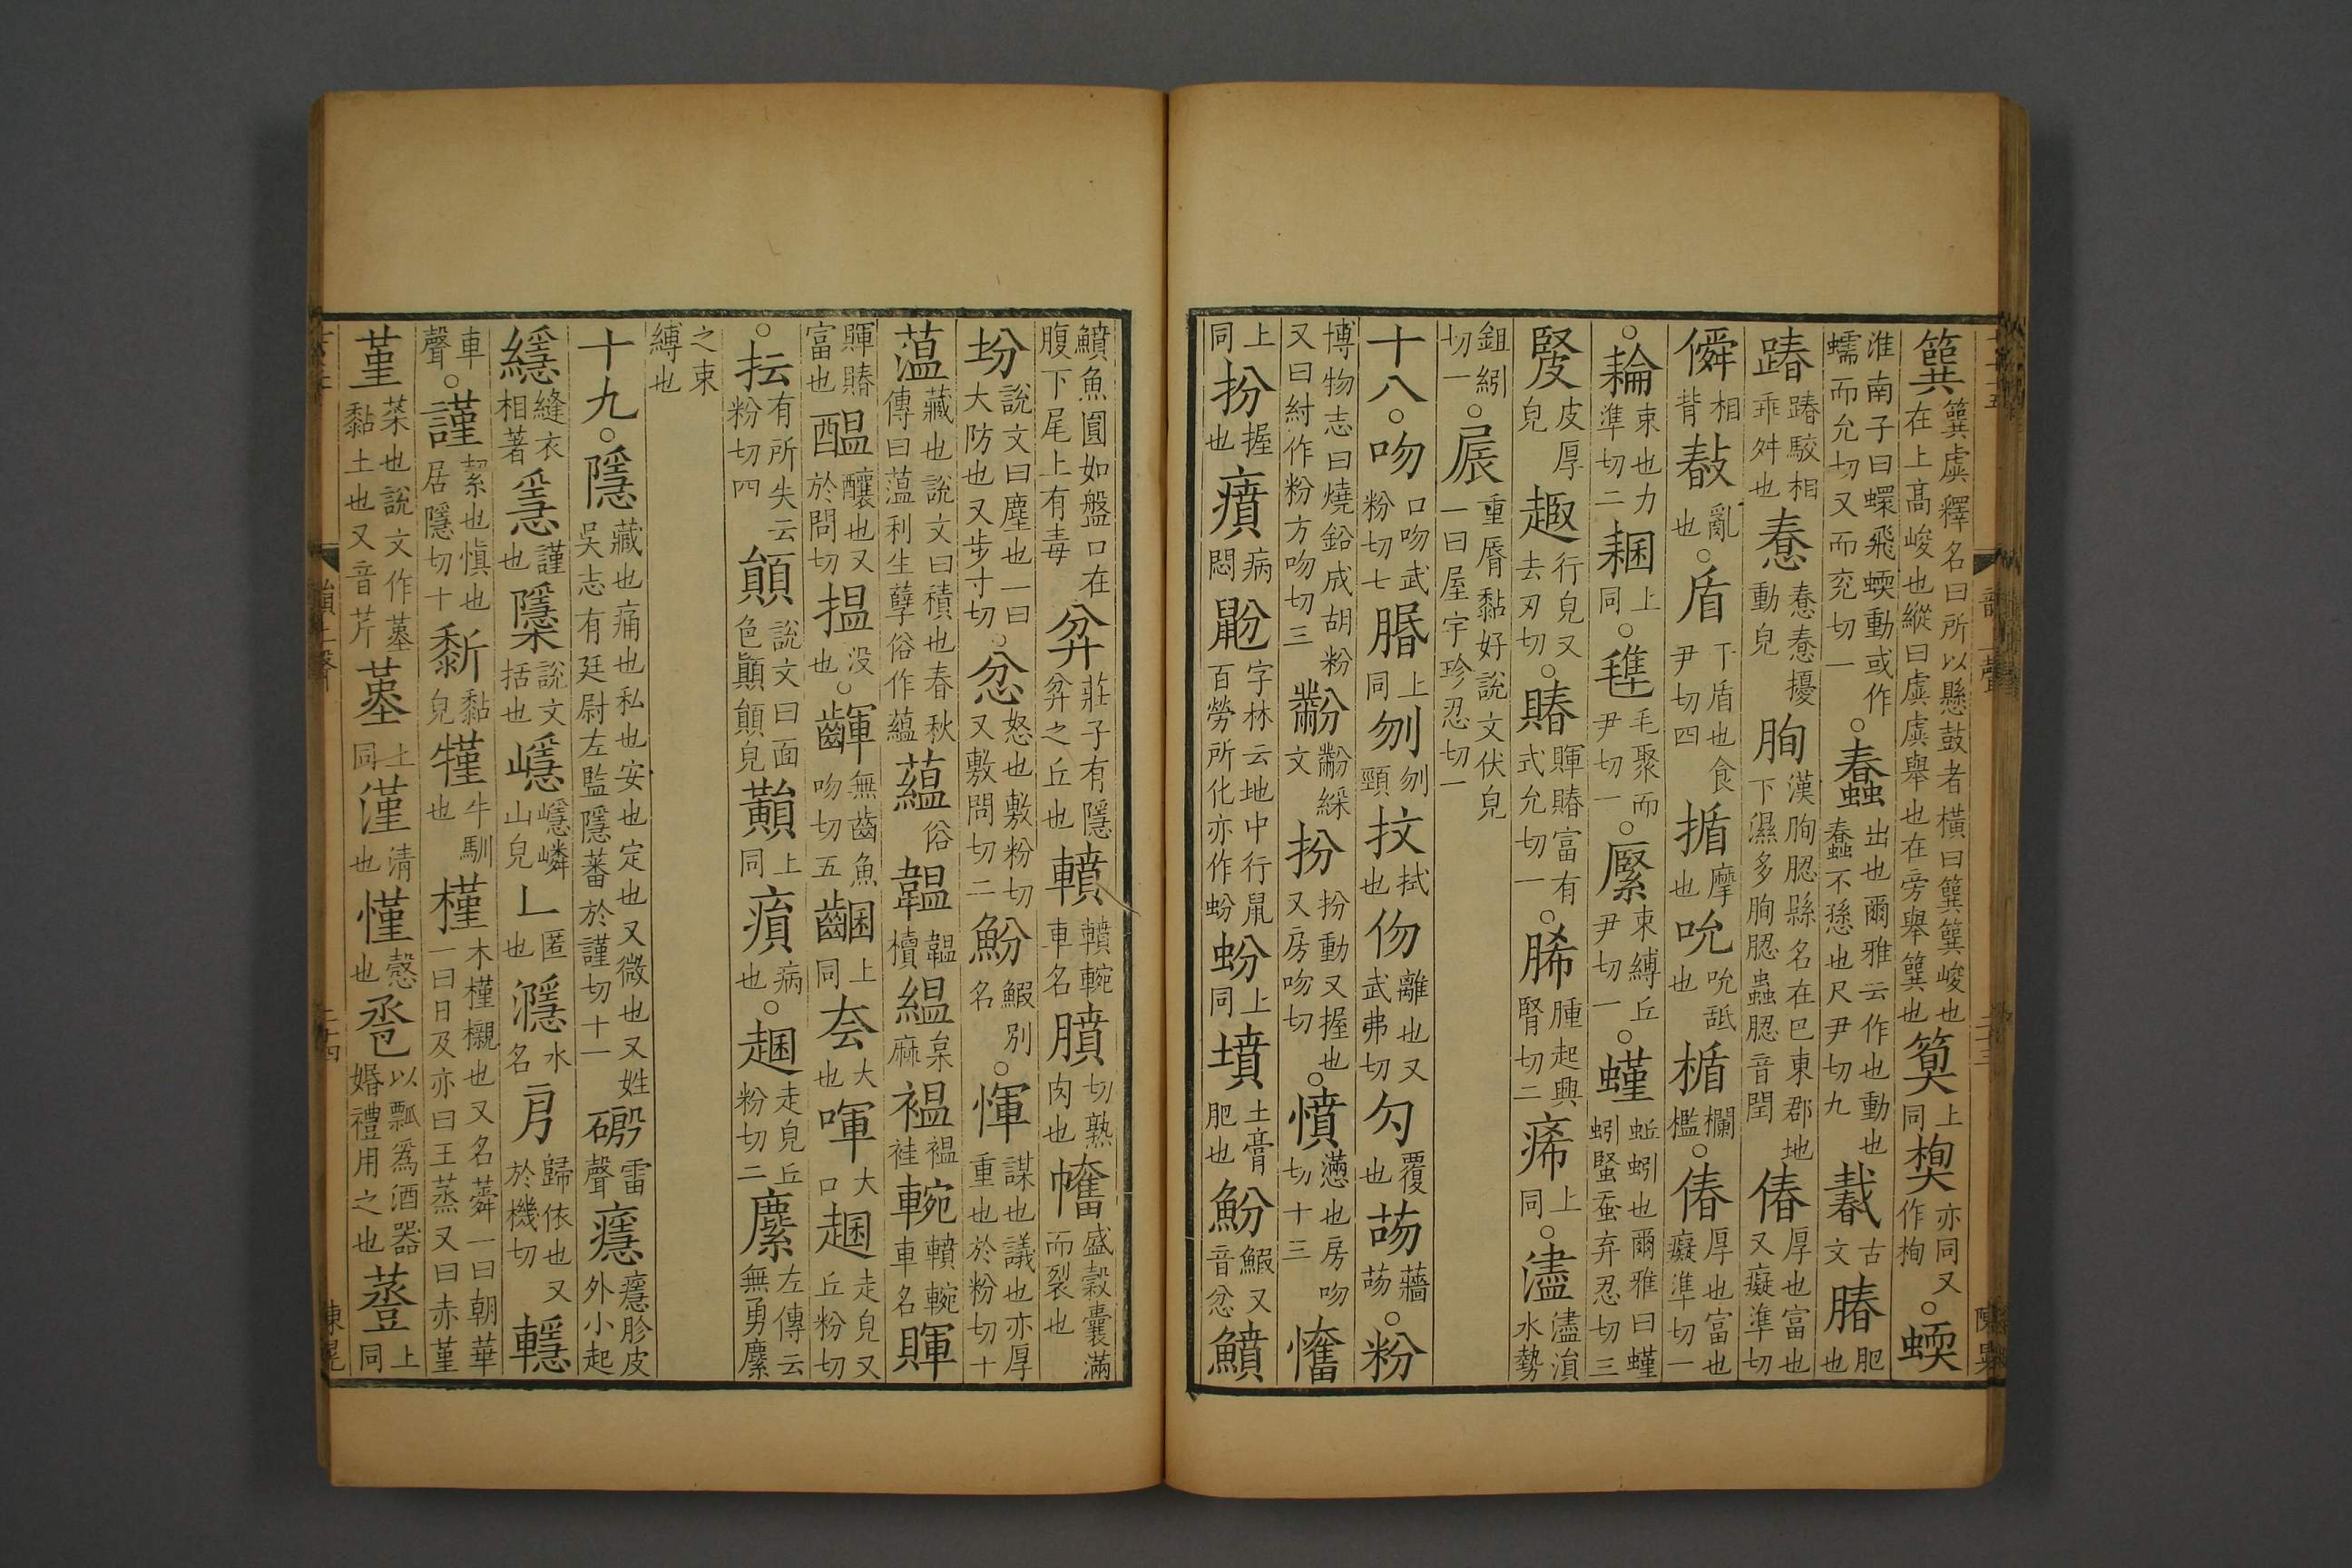 簨簨虡釋名曰所以懸鼓者橫曰簨簨峻也在上高峻也縱曰虡虡舉也在旁舉簨也䈝上同㮷亦同又作栒○蝡
淮南子曰蠉飛蝡動或作蠕而允切又而兖切一○蠢出也爾雅云作也動也蠢不遜也尺尹切九𢧨古文䐏肥也
踳踳駮相乖舛也惷惷惷擾動皃朐漢朐䏰縣名在巴東郡地下濕多朐䏰蟲䏰音閏偆厚也富也又癡準切
僢相背㪟亂也○盾干盾也食尹切四揗摩也吮吮舐也楯欄檻○偆厚也富也癡準切一
○耣束也力準切二𦓼上同○毴毛聚而尹切一○緊束縛丘尹切一○螼蚯蚓也爾雅曰螼蚓豎蚕弃忍切三
䝨皮厚皃趣行皃又去刃切○賰賱賰富有式允切一○脪腫起興腎切二痚上同○濜濜滇水勢
鉏紖切一○㞟重脣黏好說文伏皃一曰屋宇珍忍切一
十八○吻口吻武粉切七脗上同刎刎頸抆拭也伆離也又武弗切勽覆也芴蘠芴○粉
博物志曰燒鉛成胡粉又曰紂作粉方吻切三黺黺綵文扮扮動又握也又房吻切○憤懣也房吻切十三㥹
上同扮握也㿎病悶鼢字林云地中行鼠百勞所化亦作蚡蚡上同墳土膏肥也魵鰕又音忿鱝
鱝魚圓如盤口在腹下尾上有毒弅莊子有隱弅之丘也轒轒輓車名膹切熟肉也㡒盛穀囊滿而裂也
坋說文曰塵也一曰大防也又步寸切○忿怒也敷粉切又敷問切二魵鰕別名○惲謀也議也亦厚重也於粉切十
薀藏也說文曰積也春秋傳曰薀利生孽俗作蘊蘊俗韞韞櫝縕枲麻褞褞袿輓轒輓車名賱
賱賰富也醞釀也又於問切揾没也○齳無齒魚吻切五齫上同夽大也喗大口䞫走皃又丘粉切
○抎有所失云粉切四䫟說文曰面色䫟䫟皃顭上同㾕病也○䞫走皃丘粉切二麇左傳云無勇麇
之束縛也
十九○隱藏也痛也私也安也定也又微也又姓吳志有廷尉左監隱蕃於謹切十一磤雷聲癮癮胗皮外小起
繏縫衣相著㥯謹也櫽說文栝也嶾嶾嶙山皃乚匿也濦水名㐆歸依也又於機切轀
車聲○謹絜也愼也居隱切十斳黏皃㹏牛馴也槿木槿櫬也又名蕣一曰朝華一曰日及亦曰王蒸又曰赤堇
堇菜也說文作墓黏土也又音芹墓上同漌清也慬慤也巹以瓢爲酒器婚禮用之也䔲上同